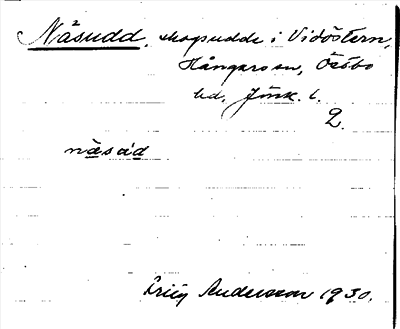 Näsudd, skogsudde i Vidöstern,
Hångers sn, Östbo
hd, Jönk. l.
2.
näsùd
Erik Andersson 1930.